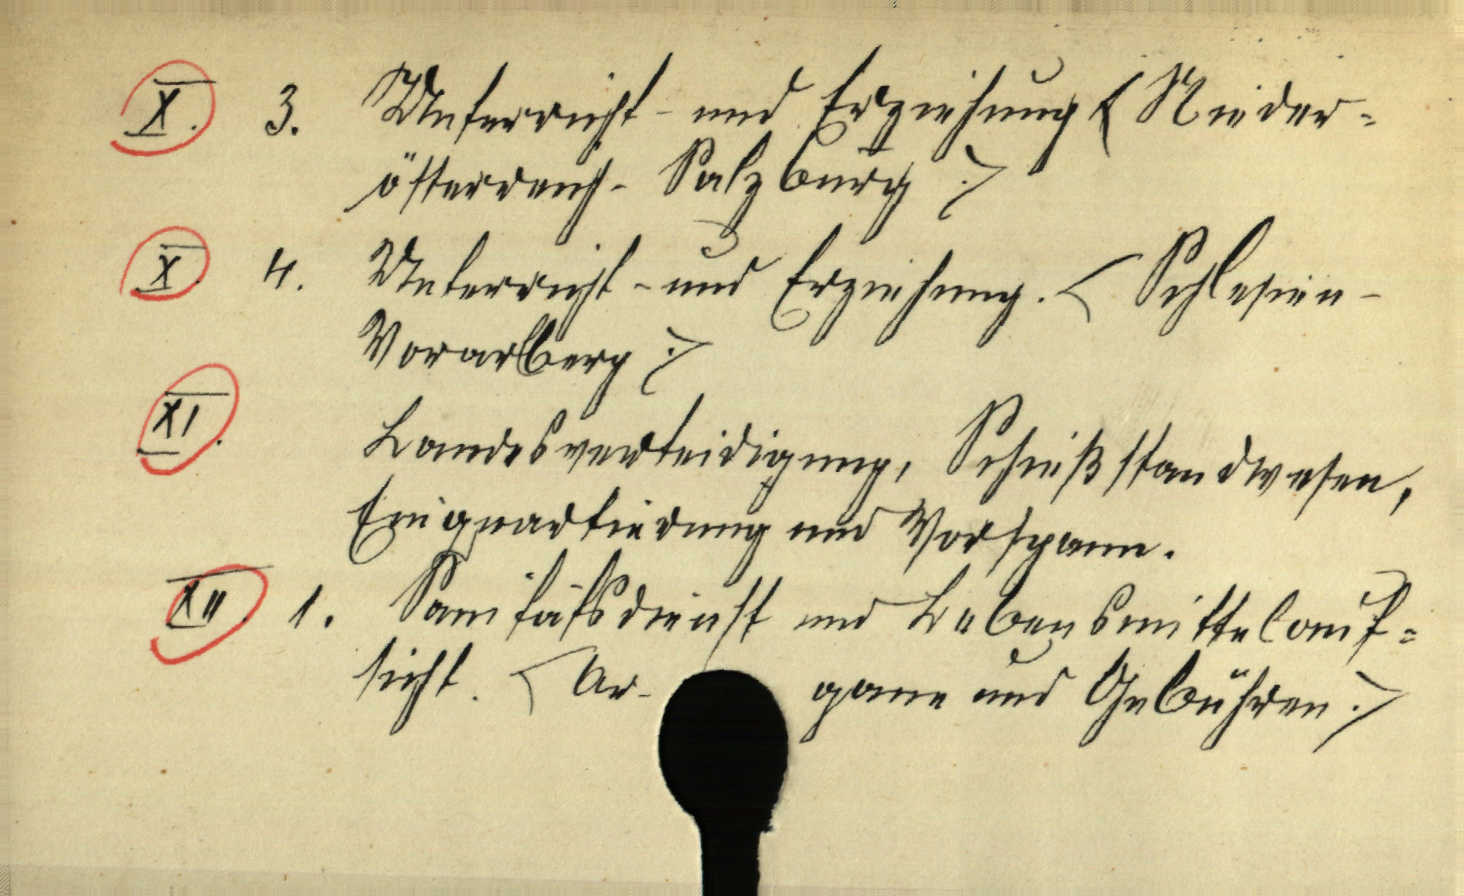 X. 3. Unterricht- und Erziehung (Nieder=
österreich- Salzburg :)
X. 4. Unterricht- und Erziehung. (Schlesien-
Vorarlberg :)
XI. Landesverteidigung, Schießstandwesen,
Einquartierung und Vorspann.
XII. 1. Sanitätsdienst und Lebensmittelauf=
sicht. (Or- gane und Gebühren :)